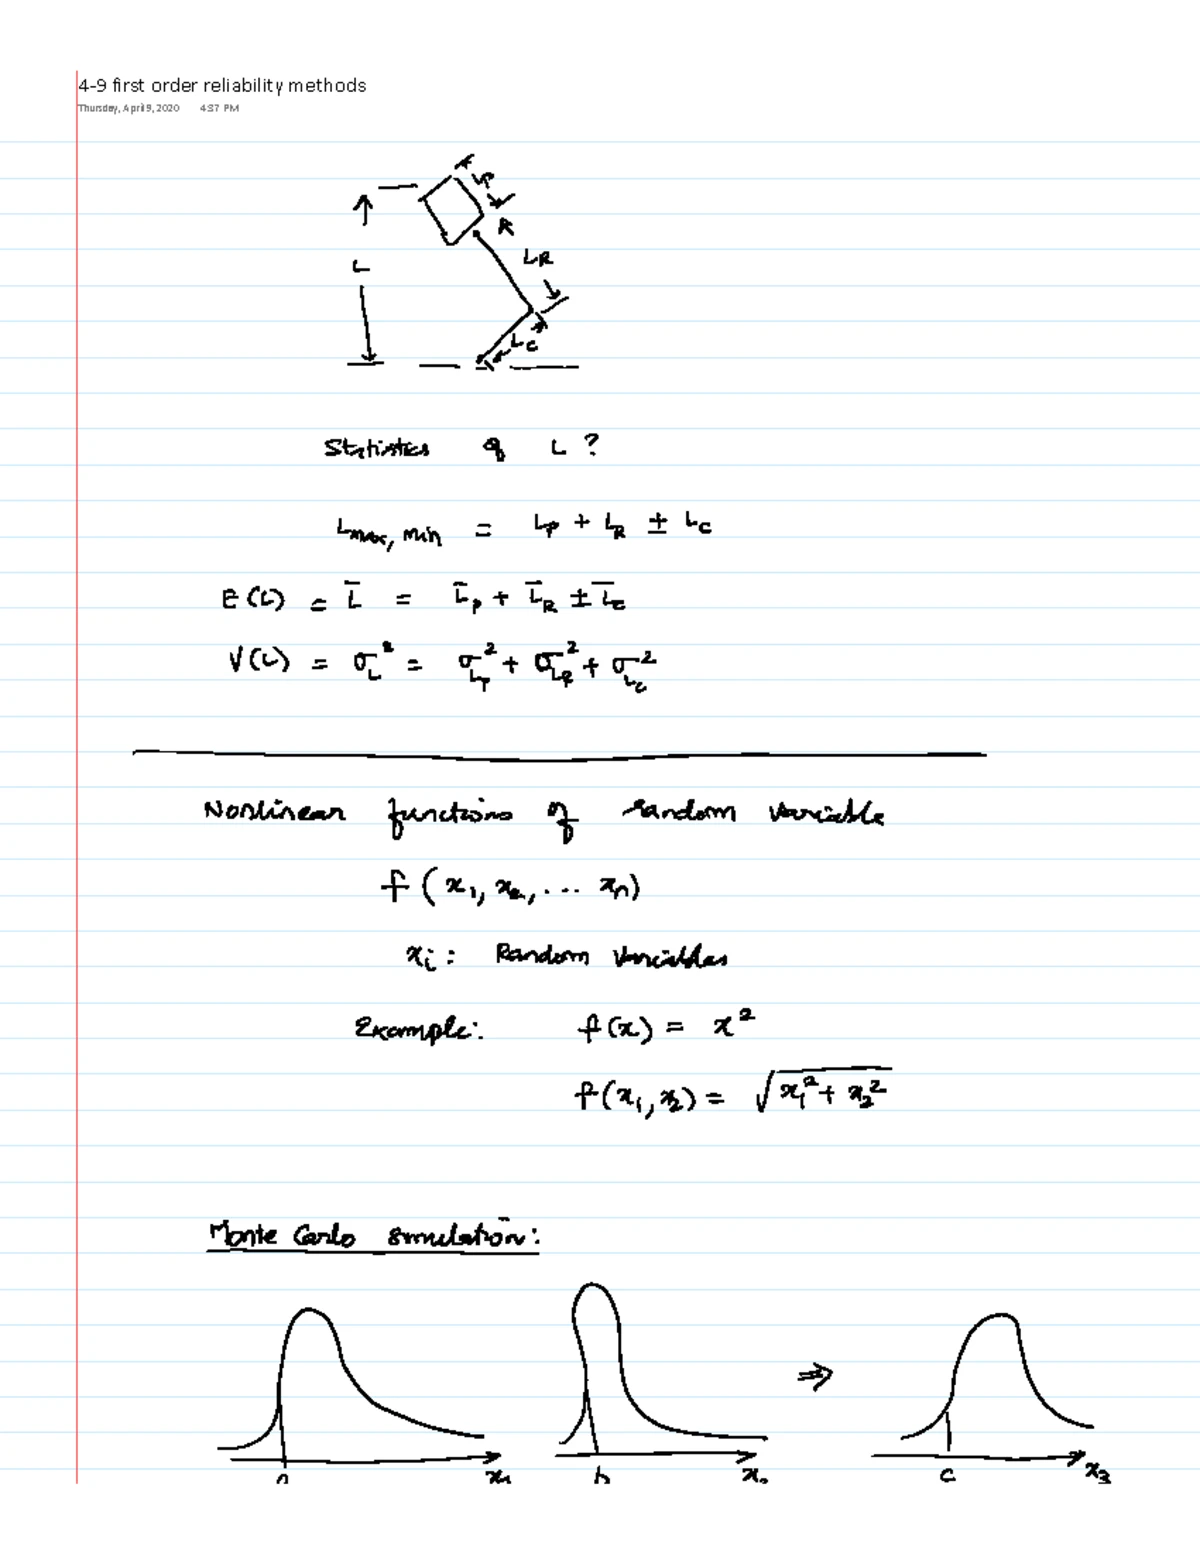 4-9 first order reliability methods
Thursday, April 9, 2020 4:37 PM
LP
R
L
LR
Lc
Statistics of L ?
Lmax, min = Lp + LR ± Lc
E(L) = L̄ = L̄p + L̄R ± L̄c
V(L) = σL² = σLp² + σLR² + σLc²
Nonlinear functions of random variable
f (x₁, x₂, ... xn)
xi : Random variables
Example: f(x) = x²
f(x₁, x₂) = √(x₁² + x₂²)
Monte Carlo simulation:
⇒
x₁ b x₂ c x₃